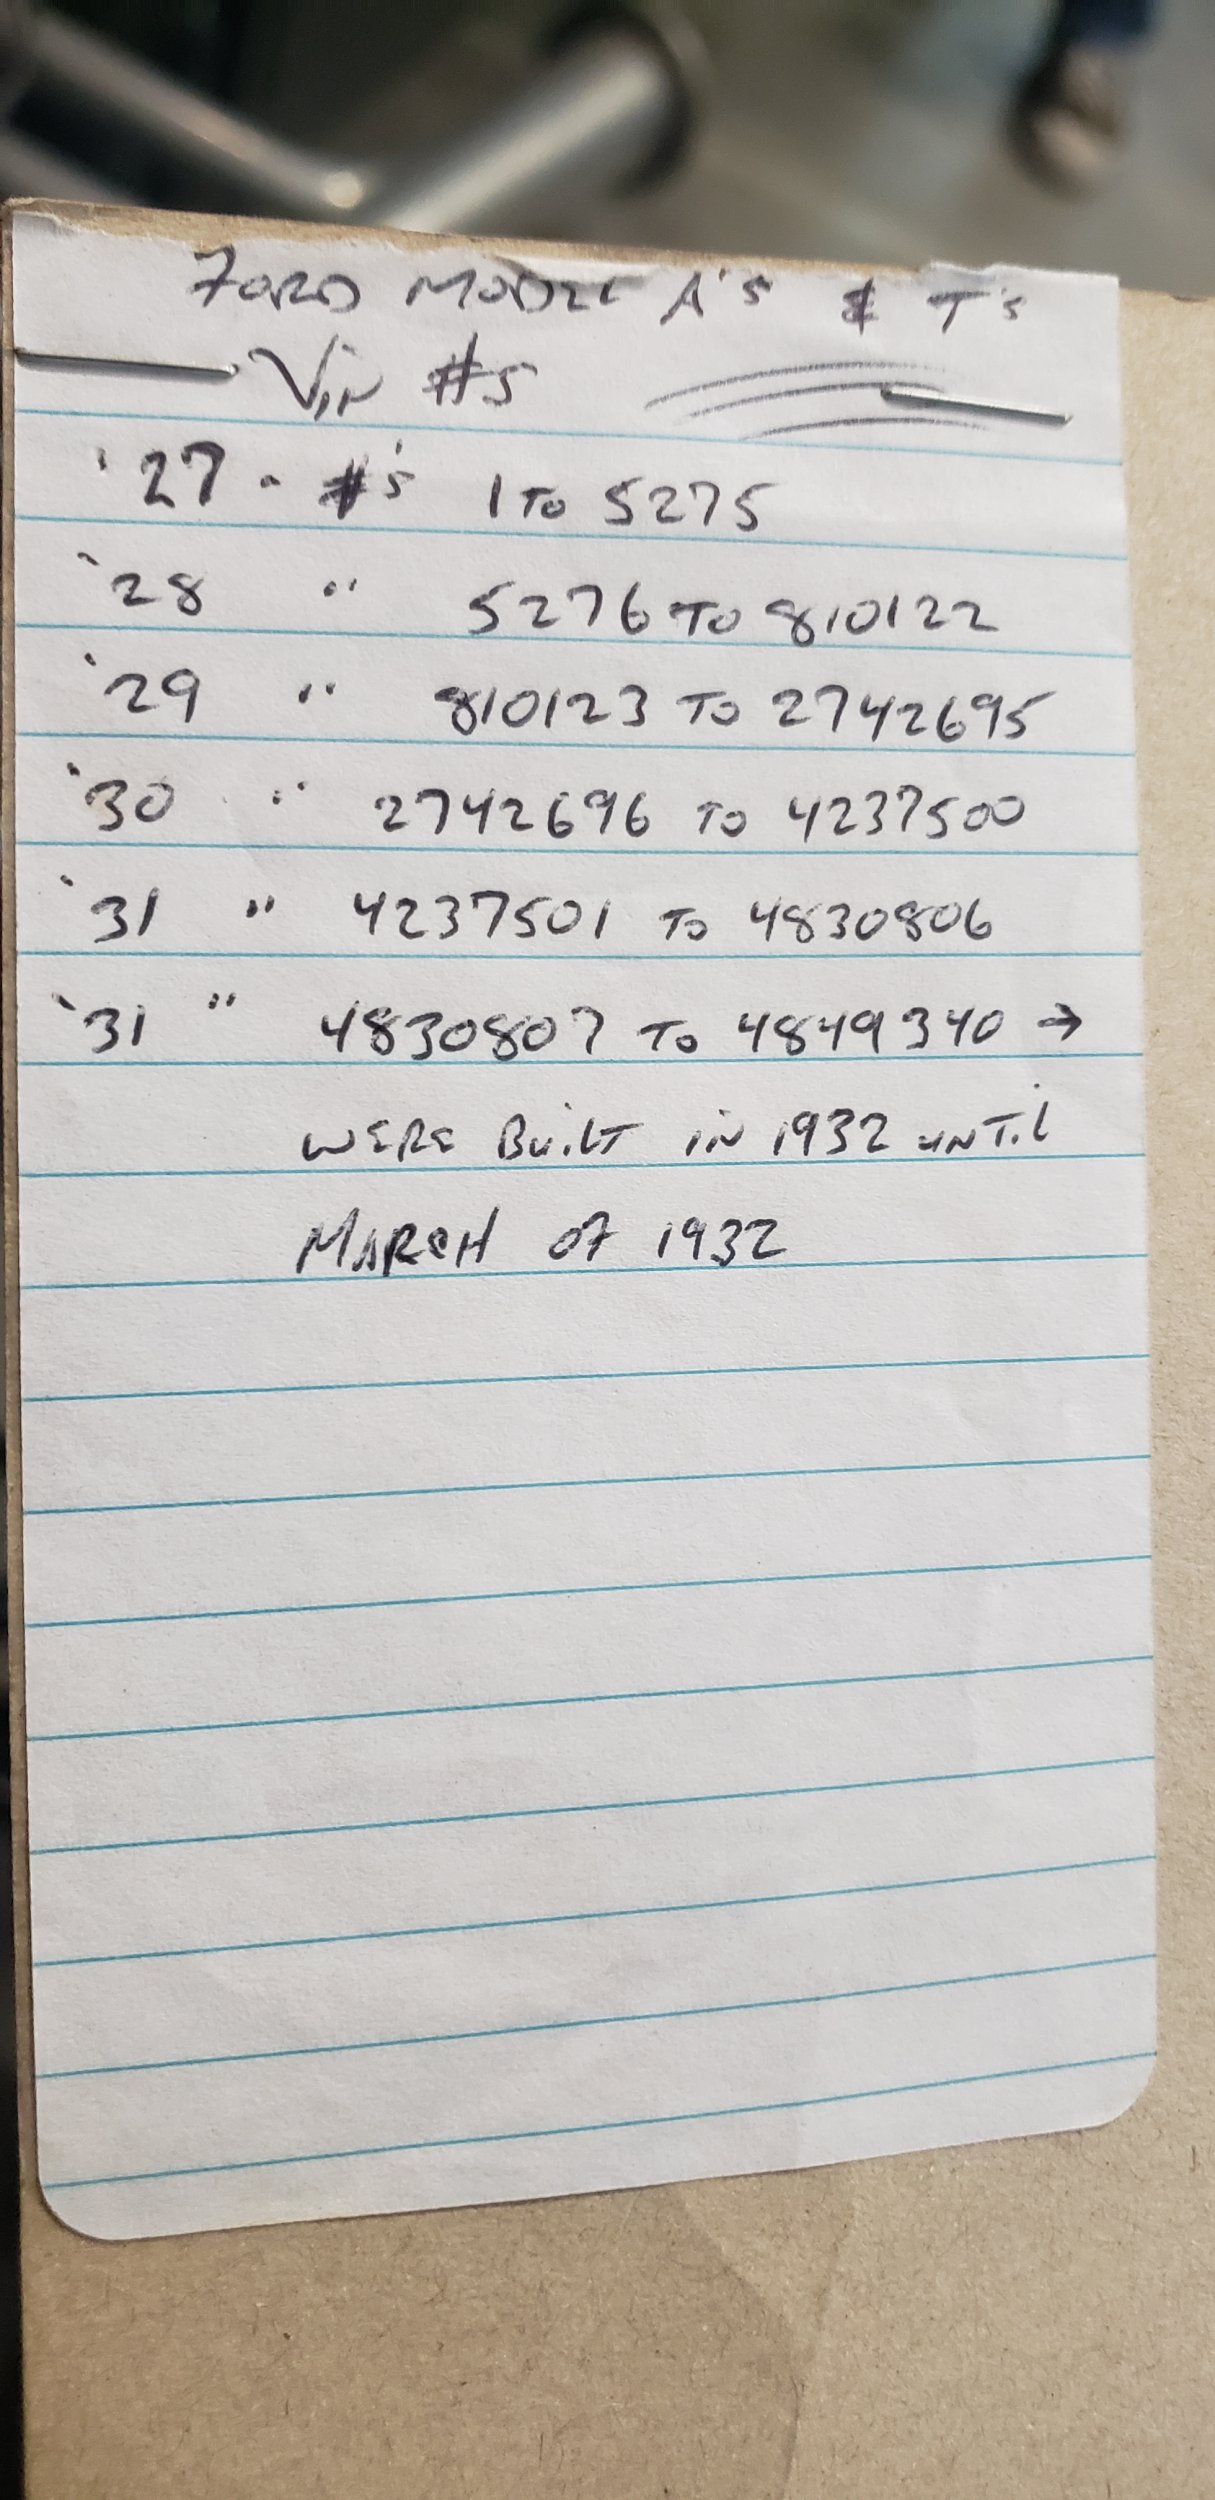 FORD MODEL A's & T's
Vin #s
'27 - #'s 1 TO 5275
'28 " 5276 TO 810122
'29 " 810123 TO 2742695
'30 " 2742696 TO 4237500
'31 " 4237501 TO 4830806
'31 " 4830807 TO 4849340 →
WERE BuiLT iN 1932 uNTiL
MARCH OF 1932